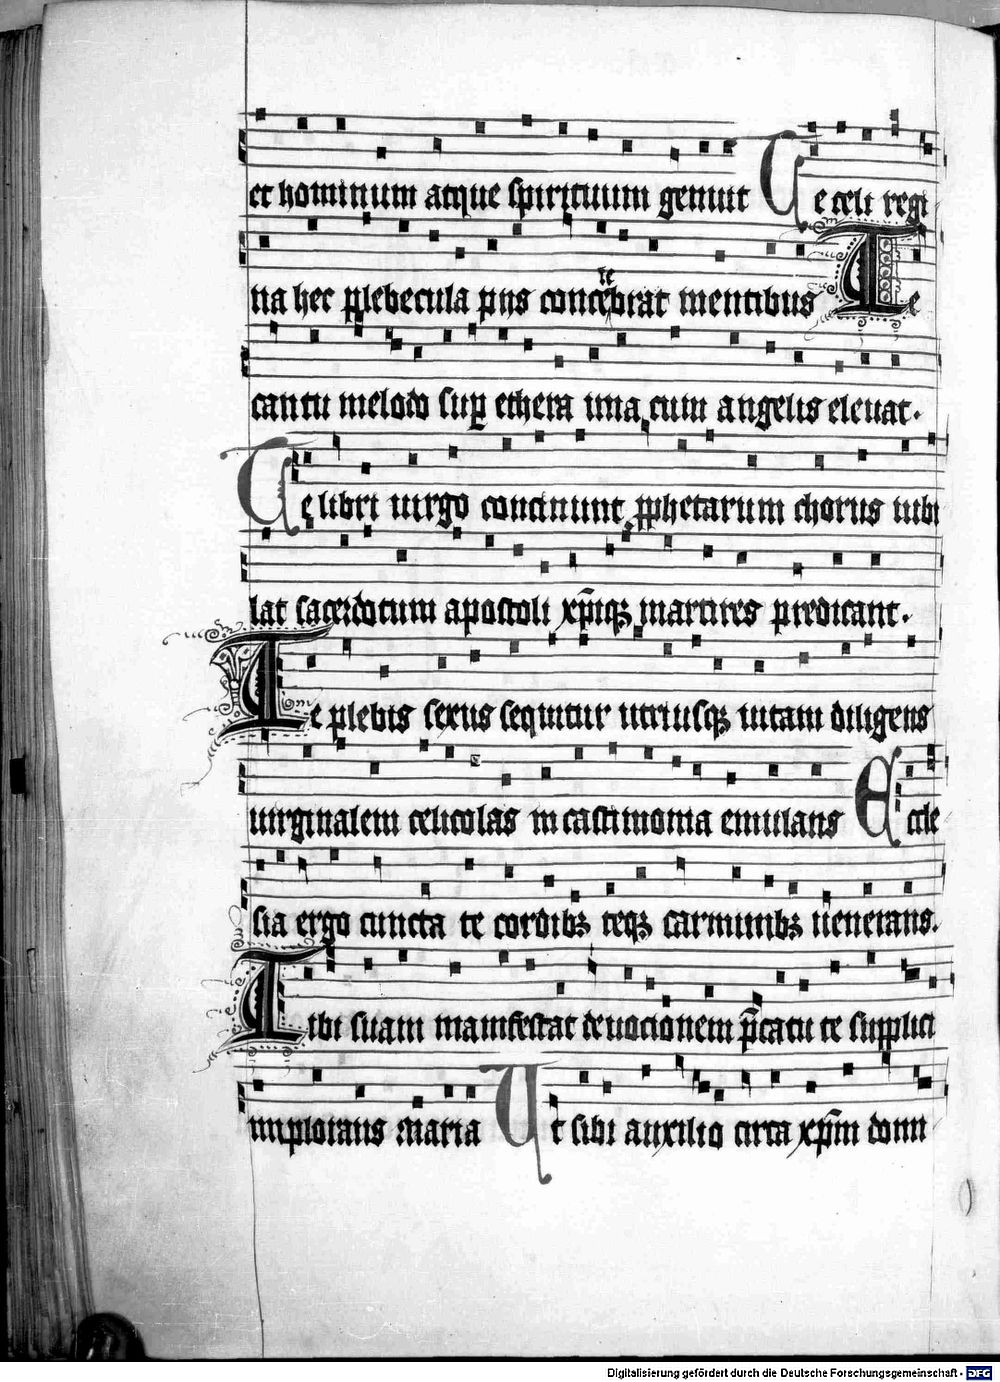 et hominum atque spirituum genuit Te celi regi
na hec plebecula pijs concelebrat mentibus Te
cantu melodo sup ethera una cum angelis eleuat.
Te libri uirgo concinunt pphetarum chorus iubi
lat sacerdotum apostoli xp̄iqʒ martires predicant.
Te plebis sexus sequitur utriusqʒ uitam diligens
uirginalem celicolas in castimonia emulans Eccle
sia ergo cuncta te cordibʒ teqʒ carminibʒ uenerans.
Tibi suam manifestat deuocionem p̄catu te supplici
implorans maria Ut sibi auxilio circa xp̄m domi
Digitalisierung gefördert durch die Deutsche Forschungsgemeinschaft - DFG